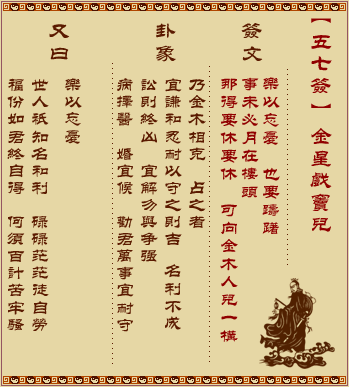 【五七簽】 金星戲竇兒
簽文
樂以忘憂 也要躊躇
事未必月在樓頭
那得要休要休 可向金木人兒一橫
卦象
乃金木相克 占之者
宜謙和忍耐以守之則吉 名利不成
訟則終凶 宜解勿與爭強
病擇醫 婚宜候 勸君萬事宜耐守
又曰
樂以忘憂
世人祇知名和利 碌碌茫茫徒自勞
福份如君終自得 何須百計苦牢騷